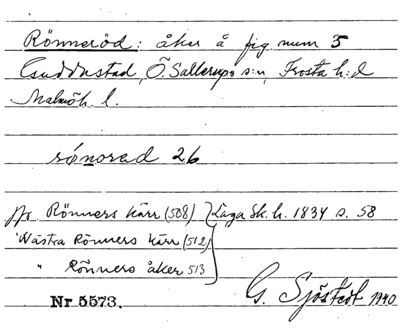 Rönneröd: åker å fig num 5
Guddastad, Ö. Sallerups s:n, Frosta h:d
Malmöh. l.
rönored 26
Jfr Rönners kärr (508) } Laga Sk. h. 1834 s. 58
"Västra Rönners kärr (512)
" Rönners åker 513
G. Sjöstedt 1940
Nr 5573.